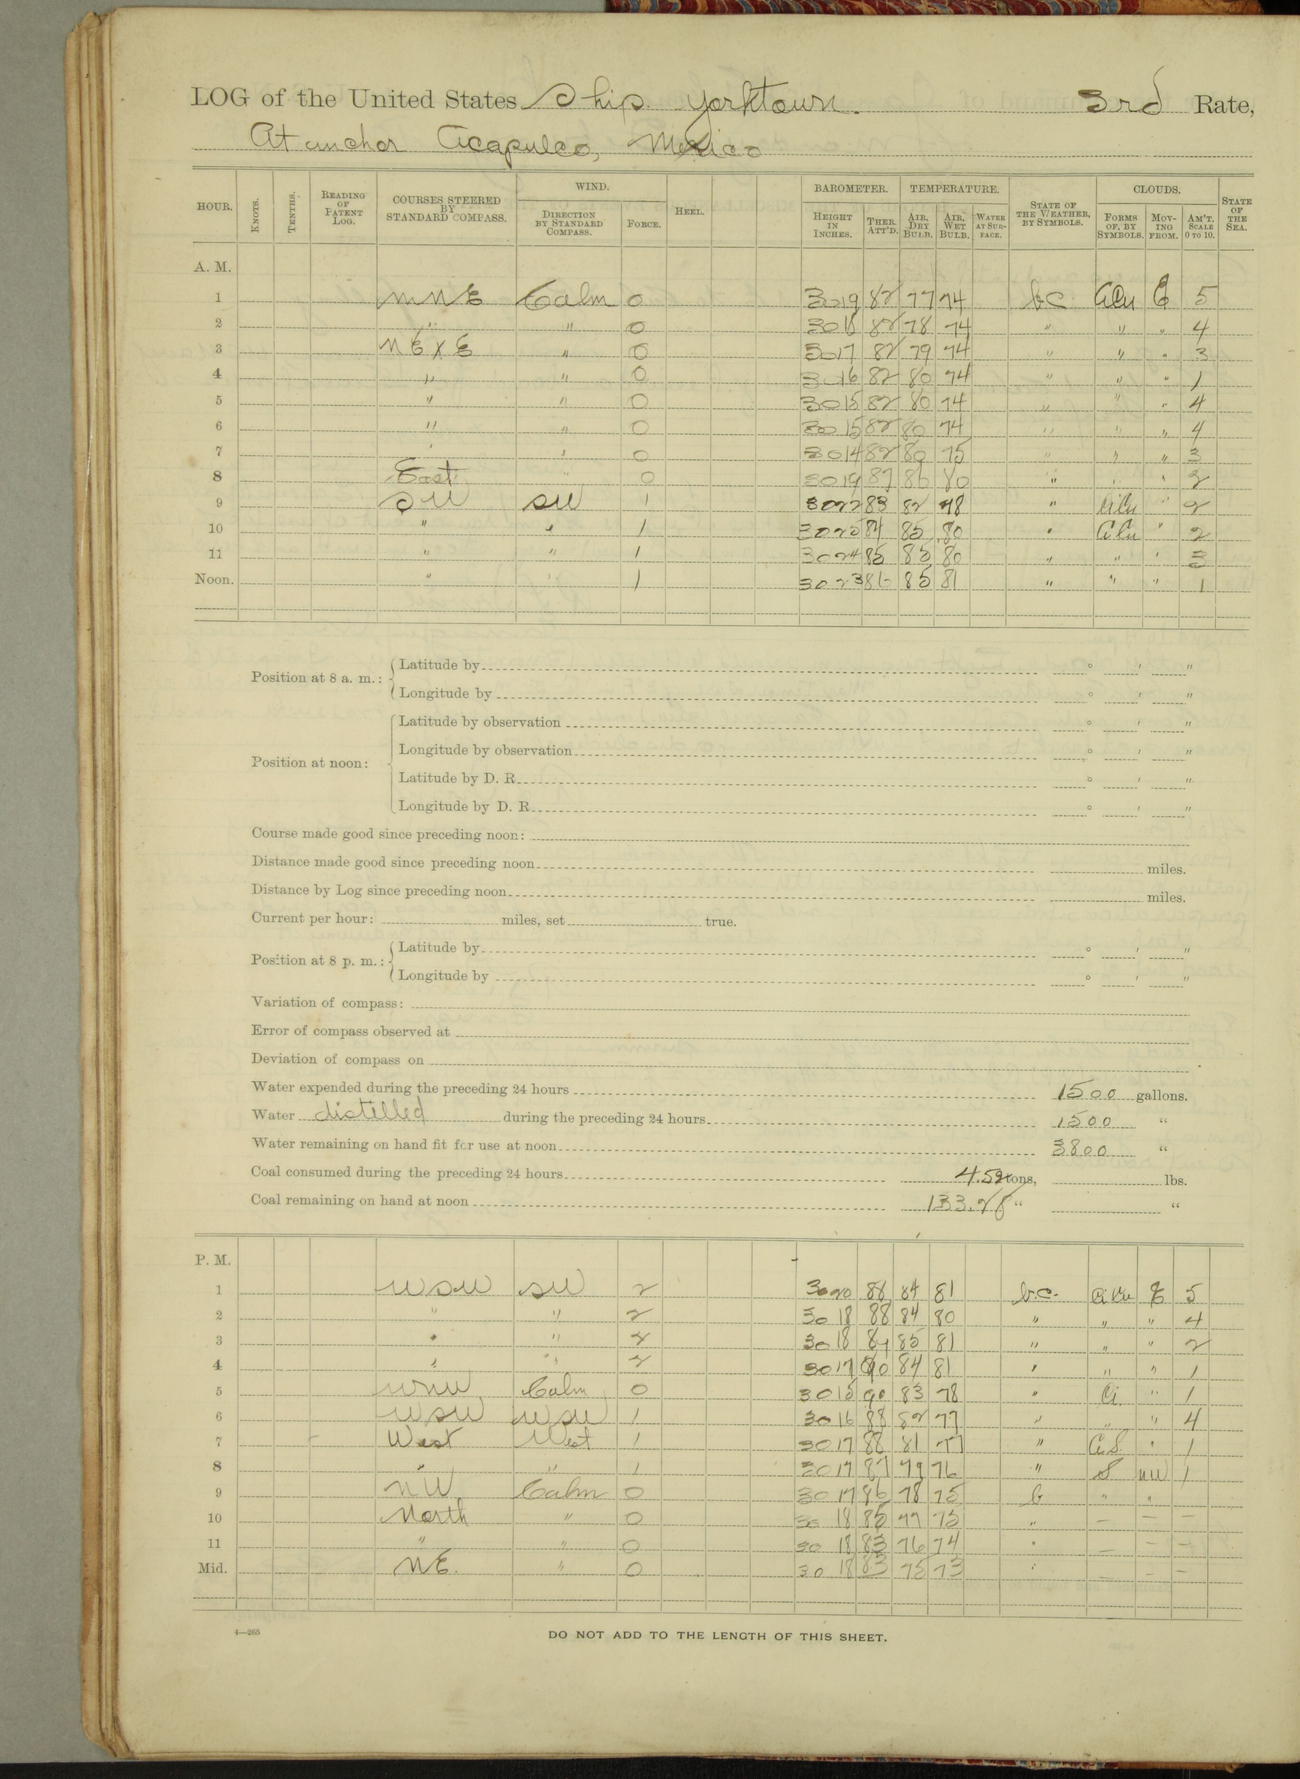 LOG of the United States Ship Yorktown. 3rd Rate,
At anchor Acapulco, Mexico
HOUR. KNOTS. TENTHS. READING OF PATENT LOG. COURSES STEERED BY STANDARD COMPASS. WIND. DIRECTION BY STANDARD COMPASS. FORCE. HEEL. BAROMETER. HEIGHT IN INCHES. THER. ATT'D. TEMPERATURE. AIR, DRY BULB. AIR, WET BULB. WATER AT SURFACE. STATE OF THE WEATHER, BY SYMBOLS. CLOUDS. FORMS OF, BY SYMBOLS. MOVING FROM. AM'T. SCALE 0 TO 10. STATE OF THE SEA.
A. M.
1 NNE Calm 0 3019 82 77 74 bc aCu E 5
2 " " 0 3018 82 78 74 " " " 4
3 NExE " 0 3017 82 79 74 " " " 3
4 " " 0 3016 82 80 74 " " " 1
5 " " 0 3015 82 80 74 " " " 4
6 " " 0 3015 82 80 74 " " " 4
7 " " 0 3014 82 80 75 " " " 3
8 East " 0 3019 87 86 80 " " " 2
9 SW SW 1 3022 83 82 78 " aCu " 2
10 " " 1 3025 84 85 80 " aCu " 2
11 " " 1 3024 85 85 80 " " " 3
Noon. " " 1 3023 86 85 81 " " " 1
Position at 8 a. m.: Latitude by ° ' "
Longitude by ° ' "
Position at noon: Latitude by observation ° ' "
Longitude by observation ° ' "
Latitude by D. R. ° ' "
Longitude by D. R. ° ' "
Course made good since preceding noon:
Distance made good since preceding noon miles.
Distance by Log since preceding noon miles.
Current per hour: miles, set true.
Position at 8 p. m.: Latitude by ° ' "
Longitude by ° ' "
Variation of compass:
Error of compass observed at
Deviation of compass on
Water expended during the preceding 24 hours 1500 gallons.
Water distilled during the preceding 24 hours 1500 "
Water remaining on hand fit for use at noon 3800 "
Coal consumed during the preceding 24 hours 4.52 tons, lbs.
Coal remaining on hand at noon 133.28 " "
P. M.
1 WSW SW 2 3020 88 84 81 b.c. aCu E 5
2 " " 2 3018 88 84 80 " " " 4
3 " " 2 3018 89 85 81 " " " 2
4 " " 2 3017 90 84 81 " " " 1
5 WNW Calm 0 3015 90 83 78 " Ci. " 1
6 WSW WSW 1 3016 88 82 77 " " " 4
7 West West 1 3017 88 81 77 " C.S. " 1
8 " " 1 3017 87 79 76 " S NW 1
9 NW Calm 0 3017 86 78 75 b " "
10 North " 0 30 18 85 77 75 " — — —
11 " " 0 30 18 83 76 74 " — — —
Mid. NE. " 0 30 18 83 75 73 " — — —
4—265
DO NOT ADD TO THE LENGTH OF THIS SHEET.